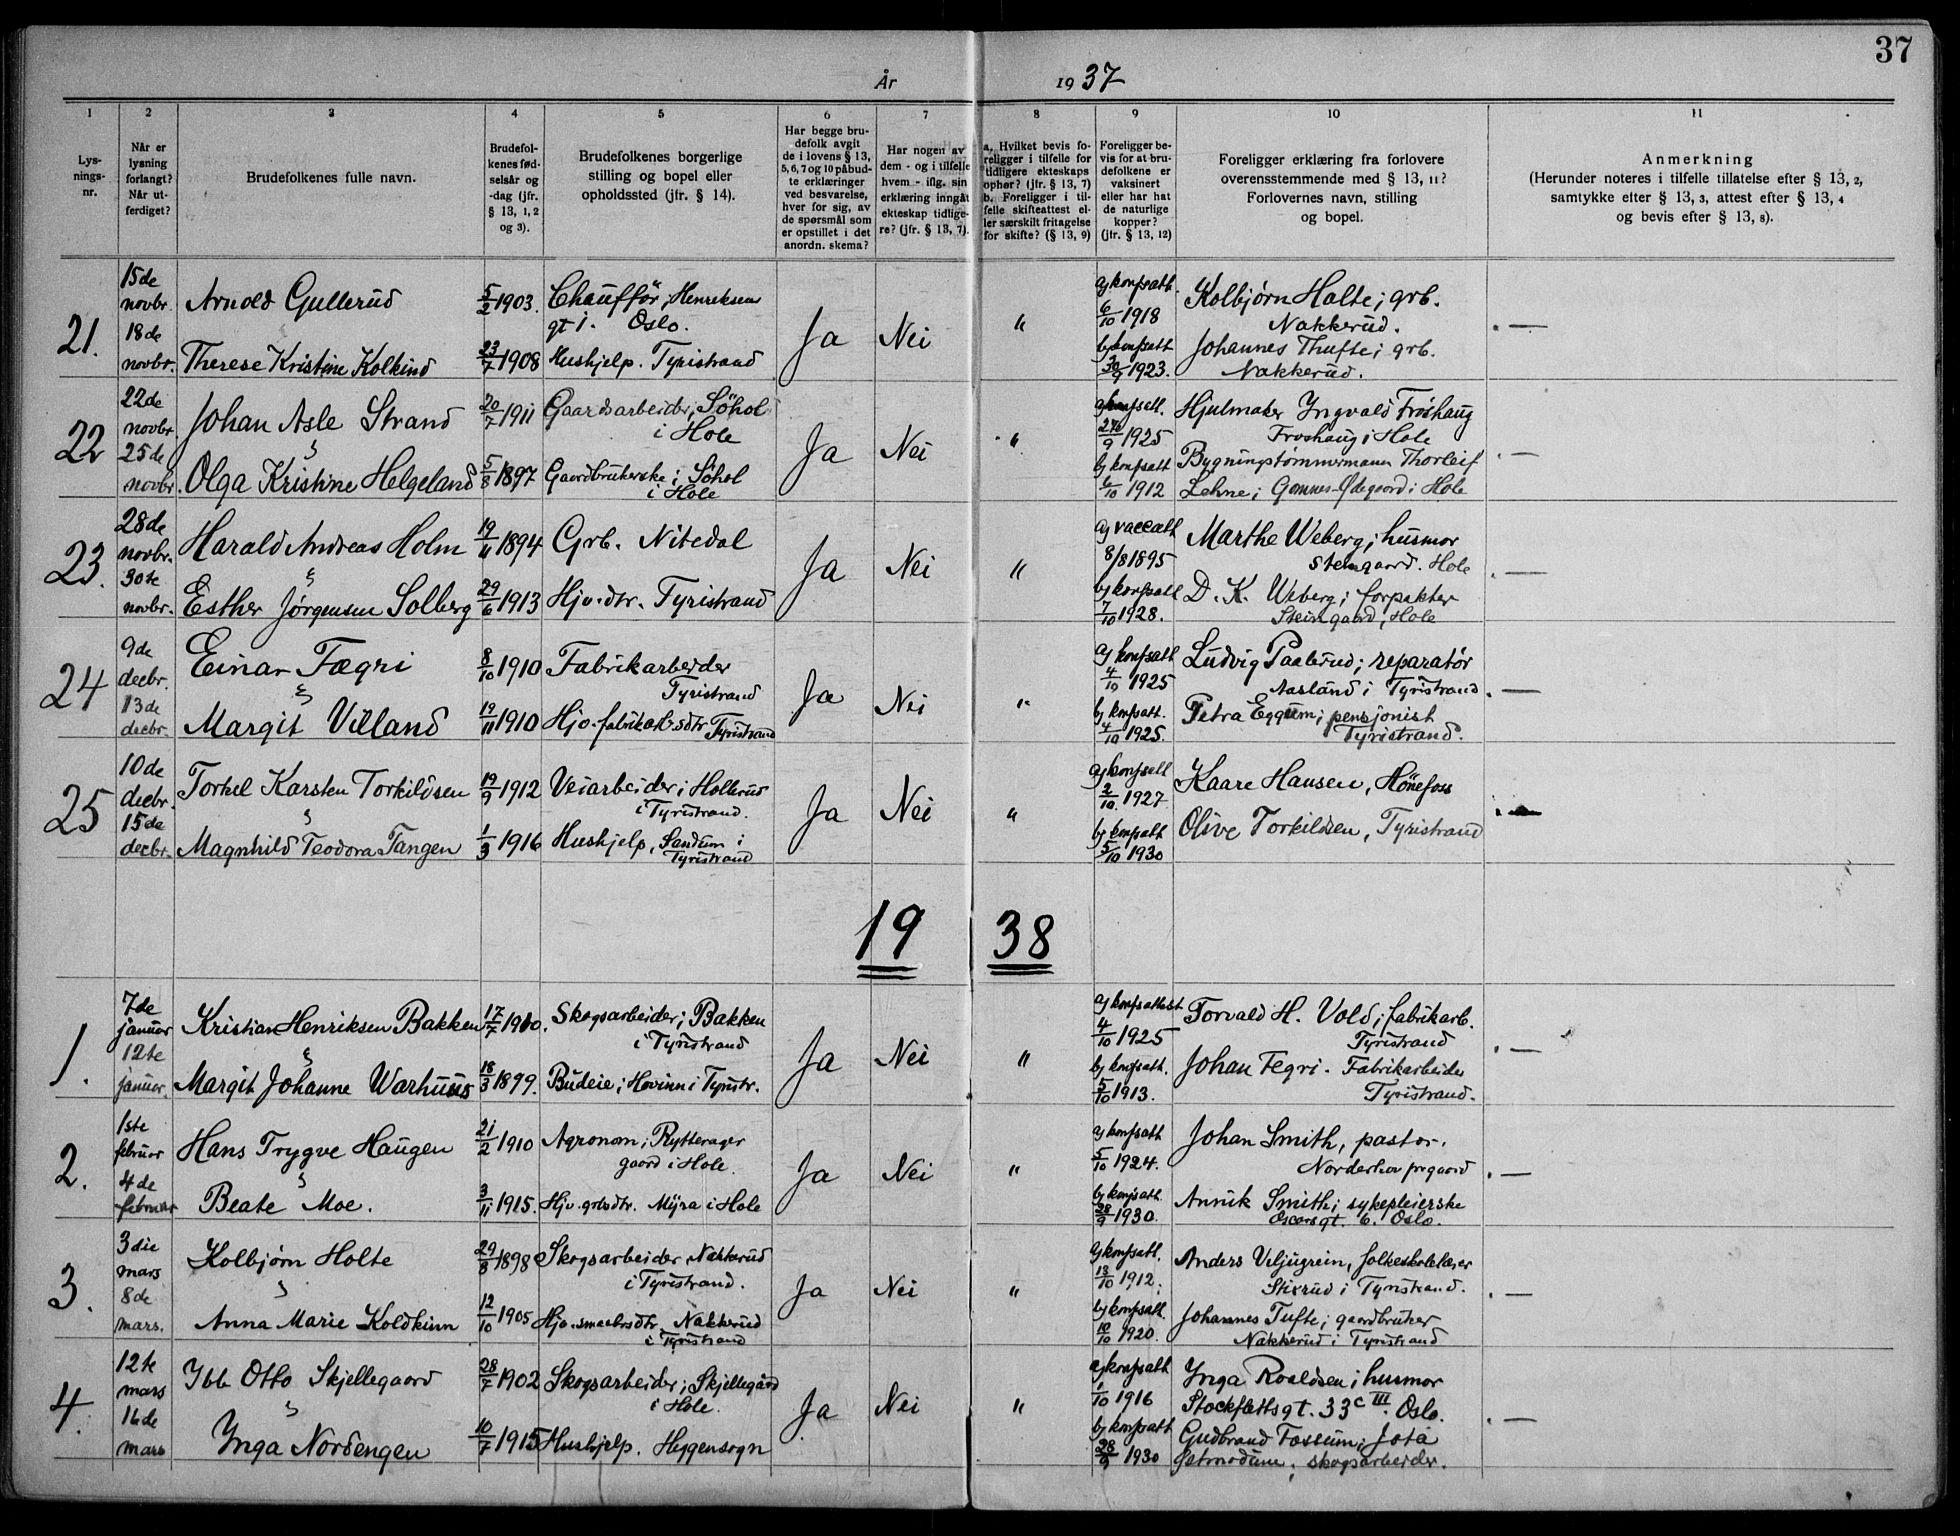 37
År 1937
1
2
3
4
5
6
7
8
9
10
11
Lys-
nings-
nr.
Når er
lysning
forlangt?
Når ut-
ferdiget?
Brudefolkenes fulle navn.
Brudefol-
kenes fød-
selsår og
-dag (jfr.
§ 13, 1, 2
og 3).
Brudefolkenes borgerlige
stilling og bopel eller
opholdssted (jfr. § 14).
Har begge bru-
defolk avgit
de i lovens § 13,
5, 6, 7 og 10 påbud-
te erklæringer
ved besvarelse,
hver for sig, av
de spørsmål som
er opstillet i det
anordn. skema?
Har nogen av
dem - og i tilfelle
hvem - iflg. sin
erklæring inngåt
ekteskap tidlige-
re? (jfr. § 13, 7).
a. Hvilket bevis fo-
religger i tilfelle for
tidligere ekteskaps
ophør? (jfr. § 13, 7)
b. Foreligger i til-
felle skifteattest el-
ler særskilt fritagelse
for skifte? (§ 13, 9)
Foreligger be-
vis for at bru-
defolkene er
vaksinert
eller har hat
de naturlige
kopper?
(jfr. § 13, 12)
Foreligger erklæring fra forlovere
overensstemmende med § 13, 11?
Forlovernes navn, stilling
og bopel.
Anmerkning
(Herunder noteres i tilfelle tillatelse efter § 13, 2,
samtykke efter § 13, 3, attest efter § 13, 4
og bevis efter § 13, 8).
21.
15de
novbr.
18de
novbr.
Arnold Gullerud
Therese Kristine Kolkind
5/2 1903.
23/7 1908
Chauffør, Henriksens
gt 1. Oslo.
Hushjelp. Tyristrand
Ja
Nei
"
a) konfsatt.
6/10 1918
b) konfsatt
30/9 1923.
Kolbjørn Holte; grb.
Nakkerud.
Johannes Thufte; grb.
Nakkerud.
. —
22
22de
novbr.
25de
novbr.
Johan Asle Strand
Olga Kristine Helgeland
20/7 1911
5/8 1897
Gaardsarbeider, Søhol
i Hole
Gaardbrukerske; Søhol
i Hole
Ja
Nei
"
a) konfsatt.
1925
b) konfsatt
6/10 1912
Hjulmaker Yngvald Frøshaug
Frøshaug i Hole
Bygningstømmermann Thorleif
Lehne; Gomnes-Ødegaard i Hole
. —
23.
28de
novbr.
30te
novbr.
Harald Andreas Holm
Esther Jørgensen Solberg
19/11 1894
29/6 1913
Grb. Nitedal
Hjv.dtr. Tyristrand
Ja
Nei
"
a) vaccatt
8/8 1895
b) konfsatt
7/10 1928.
Marthe Weberg; husmor
Stengaard. Hole
D. K. Weberg; forpakter
Steingaard, Hole
. —
24
9de
decbr.
13de
decbr.
Einar Fægri
Margit Villand
8/10 1910
19/11 1910
Fabrikarbeider
Tyristrand
Hjv. fabrikarb.sdtr. Tyristrand
Ja
Nei
"
a) konfsatt
4/10 1925
b) konfsatt.
4/10 1925.
Ludvig Paalerud; reparatør
Aasland i Tyristrand
Petra Eggum; pensjonist
Tyristrand.
. —
25
10de
decbr.
15de
decbr.
Torkel Karsten Torkildsen
Magnhild Teodora Tangen
19/9 1912
1/3 1916
Veiarbeider; Hollerud
i Tyristrand.
Hushjelp, Sandum i
Tyristrand
Ja
Nei
"
a) konfsatt
2/10 1927
b) konfsatt
5/10 1930
Kaare Hansen, Hønefoss
Olive Torkildsen, Tyristrand
. —
19 38
1.
7de
januar
12te
januar.
Kristian Henriksen Bakken
Margit Johanne Warhuus
17/7 1910.
18/3 1899.
Skogsarbeider; Bakken
i Tyristrand
Budeie; Hovinn i Tyristr.
Ja
Nei
"
a) konfsattest
4/10 1925
b) konfsatt.
5/10 1913.
Torvald H. Vold; fabrikarb.
Tyristrand
Johan Fegri. Fabrikarbeider
Tyristrand.
. —
2.
1ste
februar
4de
februar
Hans Trygve Haugen
Beate Moe.
21/2 1910
3/11 1915.
Agronom; Rytterager
gaard i Hole.
Hjv. grbsdtr. Myra i Hole
Ja
Nei
"
a) konfsatt
5/10 1924.
b) konfsatt.
28/9 1930.
Johan Smith, pastor.
Norderhov prgaard
Annik Smith; sykepleierske
Oscarsgt. 6. Oslo.
. —
3.
3die
mars
8de
mars.
Kolbjørn Holte
Anna Marie Koldkinn
29/8 1898
12/10 1905
Skogsarbeider, Nakkerud
i Tyristrand.
Hjv. smaabrsdtr. Nakkerud
i Tyristrand
Ja
Nei
"
a) konfsatt.
13/10 1912.
b) konfsatt.
10/10 1920.
Anders Viljugrein, folkeskolelærer
Stixrud i Tyristrand.
Johannes Tufte; gaardbruker
Nakkerud i Tyristrand
. —
4.
12te
mars
16de
mars
Ibb Otto Skjellegaard
Ynga Nordengen
28/7 1902
10/7 1915
Skogsarbeider; Skjellegård
i Hole.
Hushjelp. Heggensogn
Ja
Nei
"
a) konfsatt
1/10 1916
b) konfsatt
28/9 1930
Ynga Roaldsen; husmor
Stockflethsgt. 33 c III. Oslo.
Gudbrand Fossum; Jota
Getmodum; skogsarbeider.
. —